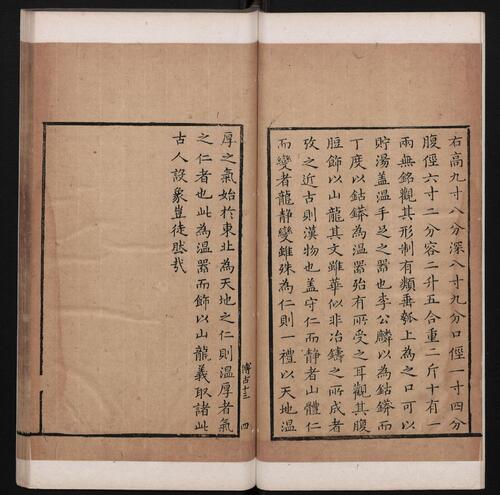 右高九寸八分深八寸九分口徑一寸四分
腹徑六寸二分容二升五合重二斤十有一
兩無銘觀其形制有類垂瓠上為之口可以
貯湯蓋溫手足之器也李公麟以為鈷䥈而
丁度以鈷䥈為溫器殆有所受之耳觀其腹
脰飾以山龍其文雖華似非冶鑄之所成者
攷之近古則漢物也蓋守仁而靜者山體仁
而變者龍靜變雖殊為仁則一禮以天地溫
厚之氣始於東北為天地之仁則溫厚者氣
之仁者也此為溫器而飾以山龍義取諸此
古人設象豈徒然哉
博古十三
四